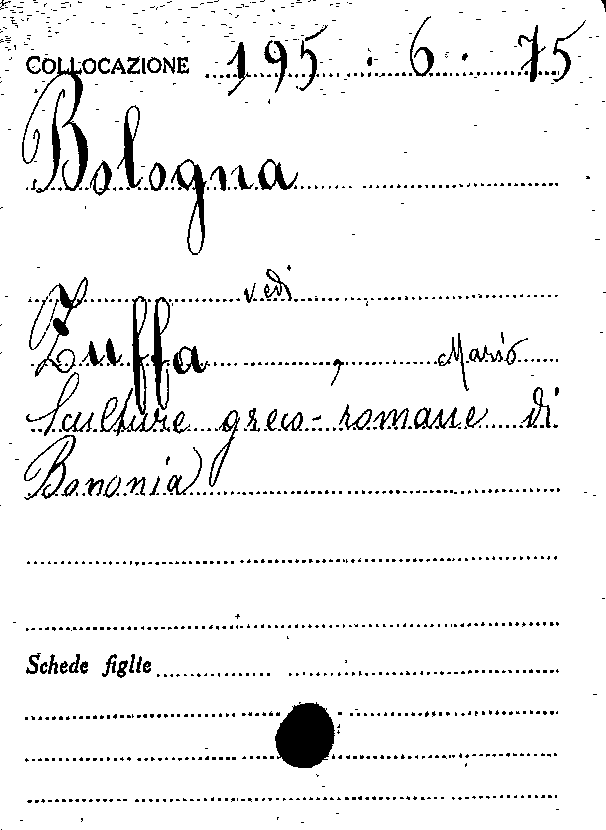 COLLOCAZIONE 195 . 6 . 75
Bologna
vedi
Zuffa , Mario
Sculture greco-romane di
Bononia)
Schede figlie